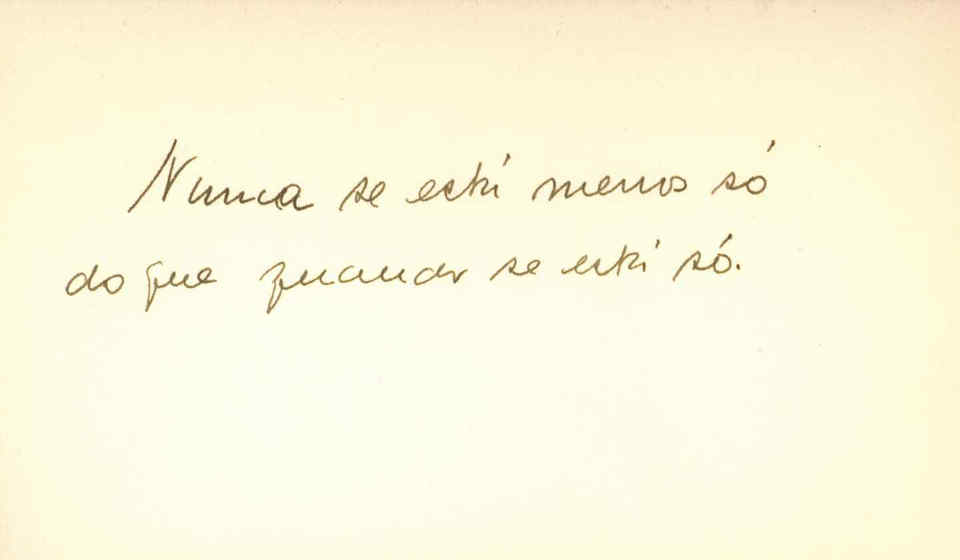 Nunca se está menos só
do que quando se está só.